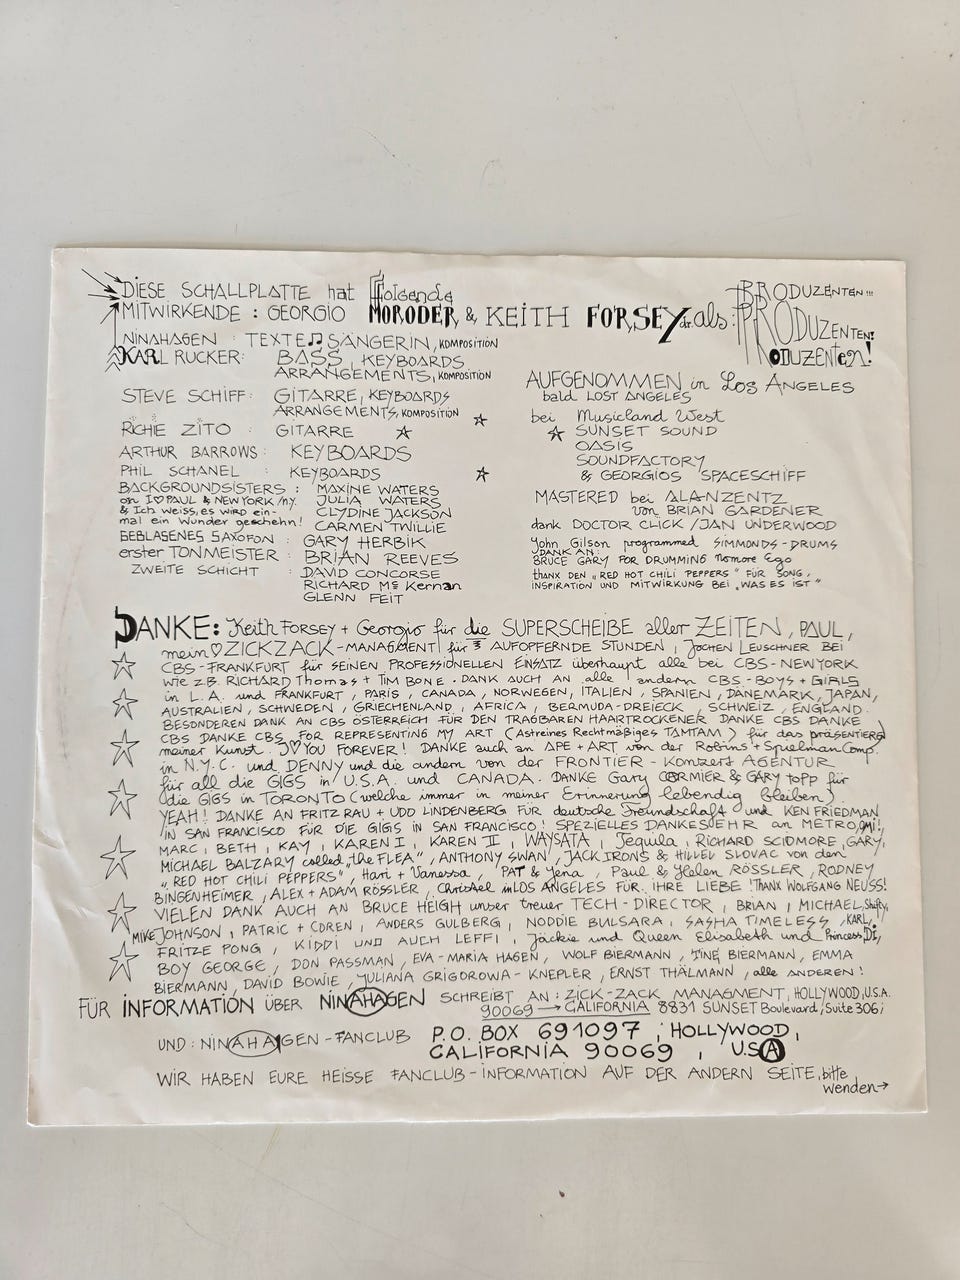 DIESE SCHALLPLATTE hat folgende
MITWIRKENDE : GEORGIO MORODER & KEITH FORSEY als :
PRODUZENTEN!!!
PRODUZENTEN!
PRODUZENTEn!
NINAHAGEN : TEXTE♫SÄNGERIN, KOMPOSITION
KARL RUCKER: BASS, KEYBOARDS
ARRANGEMENTS, KOMPOSITION
STEVE SCHIFF: GITARRE, KEYBOARDS
ARRANGEMENTS, KOMPOSITION
RICHIE ZITO : GITARRE
ARTHUR BARROWS: KEYBOARDS
PHIL SCHANEL : KEYBOARDS
BACKGROUNDSISTERS : MAXINE WATERS
on I♡PAUL & NEW YORK/N.Y. JULIA WATERS
& Ich weiss, es wird ein- CLYDINE JACKSON
mal ein Wunder geschehn! CARMEN TWILLIE
GEBLASENES SAXOFON : GARY HERBIK
erster TONMEISTER : BRIAN REEVES
ZWEITE SCHICHT : DAVID CONCORSE
RICHARD Mc Kernan
GLENN FEIT
AUFGENOMMEN in LOS ANGELES
bald LOST ANGELES
bei Musicland West
SUNSET SOUND
OASIS
SOUNDFACTORY
& GEORGIOS SPACESCHIFF
MASTERED bei ALANZENTZ
von BRIAN GARDENER
dank DOCTOR CLICK / JAN UNDERWOOD
John Gilson programmed SIMMONDS-DRUMS
DANK AN:
BRUCE GARY FOR DRUMMING Nomore Ego
thanx DEN „RED HOT CHILI PEPPERS" FÜR SONG,
INSPIRATION UND MITWIRKUNG BEI „WAS ES IST"
DANKE: Keith FORSEY + Georgio für die SUPERSCHEIBE aller ZEITEN, PAUL,
mein♡ZICKZACK-MANAGMENT für 3 AUFOPFERNDE STUNDEN, JOCHEN LEUSCHNER BEI
CBS-FRANKFURT für SEINEN PROFESSIONELLEN EINSATZ überhaupt alle bei CBS-NEWYORK
wie z.B. RICHARD Thomas + TIM BONE. DANK AUCH AN alle andern CBS-BOYS + GIRLS
in L.A. und FRANKFURT, PARIS, CANADA, NORWEGEN, ITALIEN, SPANIEN, DÄNEMARK, JAPAN,
AUSTRALIEN, SCHWEDEN, GRIECHENLAND, AFRICA, BERMUDA-DREIECK, SCHWEIZ, ENGLAND.
BESONDEREN DANK AN CBS ÖSTERREICH FÜR DEN TRAGBAREN HAARTROCKENER DANKE CBS DANKE
CBS DANKE CBS FOR REPRESENTING MY ART (Astreines Rechtmäßiges TAMTAM) für das präsentieren
meiner Kunst. I♡YOU FOREVER! DANKE auch an APE + ART von der Robins + Spielman Comp.
in N.Y.C. und DENNY und die andern von der FRONTIER-Konzert AGENTUR
für all die GIGS in U.S.A. und CANADA. DANKE Gary CORMIER & GARY topp für
die GIGS in TORONTO (welche immer in meiner Erinnerung lebendig bleiben)
YEAH! DANKE AN FRITZ RAU + UDO LINDENBERG FÜR deutsche Freundschaft und KEN FRIEDMAN
IN SAN FRANCISCO FÜR DIE GIGS IN SAN FRANCISCO! SPEZIELLES DANKESEHR an METRO,
MARC, BETH, KAY, KAREN I, KAREN II, WAYSATA, Tequila, RICHARD SCIDMORE, GARY,
MICHAEL BALZARY called „the FLEA", ANTHONY SWAN, JACK IRONS & HILLEL SLOVAC von den
„RED HOT CHILI PEPPERS", Hari + Vanessa, PAT & Yena, Paul & Helen RÖSSLER, RODNEY
BINGENHEIMER, ALEX + ADAM RÖSSLER, Christel in LOS ANGELES FÜR IHRE LIEBE! THANX WOLFGANG NEUSS!
VIELEN DANK AUCH AN BRUCE HEIGH unser treuer TECH-DIRECTOR, BRIAN, MICHAEL, Shifty,
MIKE JOHNSON, PATRIC + COREN, ANDERS GULBERG, NODDIE BULSARA, SASHA TIMELESS, KARL,
FRITZE PONG, KIDDI UND AUCH LEFFI, Jackie und Queen Elisabeth und Princess DI,
BOY GEORGE, DON PASSMAN, EVA-MARIA HAGEN, WOLF BIERMANN, TINE BIERMANN, EMMA
BIERMANN, DAVID BOWIE, JULIANA GRIGOROWA-KNEPLER, ERNST THÄLMANN, alle ANDEREN!
FÜR INFORMATION ÜBER NINAHAGEN SCHREIBT AN: ZICK-ZACK MANAGMENT, HOLLYWOOD, U.S.A.
90069 → CALIFORNIA 8831 SUNSET Boulevard, Suite 306;
UND: NINAHAGEN-FANCLUB P.O. BOX 691097, HOLLYWOOD,
CALIFORNIA 90069, U.S.A
WIR HABEN EURE HEISSE FANCLUB-INFORMATION AUF DER ANDERN SEITE, bitte
wenden→